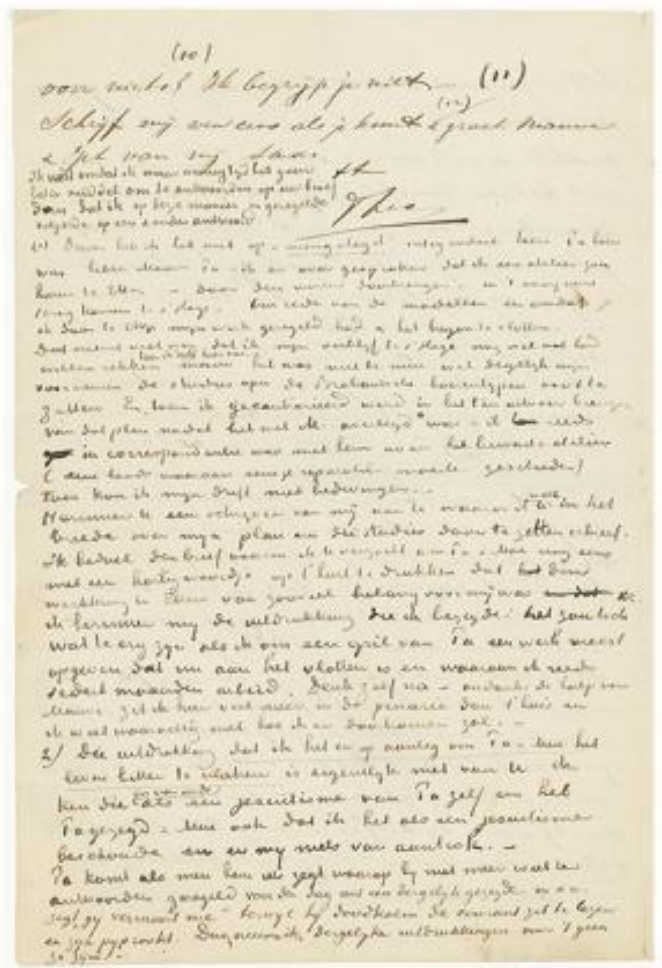 (10)
voor niets? Ik begrijp je niet (11)
(12)
Schrijf mij eens als je kunt & groet Mauve
Ik wil omdat ik
beter middel om te antwoorden op uw brief
dan dat ik op deze manier geregeld
volgende op een ander antwoord
Theo
1) het niet op aangelegd integendeel toen Pa hier
was heen Mauve Pa & ik er over gesproken dat ik een atelier zou
huren te Etten - daar den winter doorbrengen - in 't
terug komen te s'Hage. Om rede van de modellen en omdat
ik daar te Etten mijn werk geregeld had & het begon te vlotten
dat ik mijn verblijf te s'Hage nog wel wat had
willen rekken maar het was niet te min wel degelijk mijn
voornemen de studies over de Brabantsche boerentypen voort te
zetten En toen ik werd in het ten uitvoer brengen
van dat plan nadat het met M. overlegd was & ik reeds
in correspondentie was met hem over het bewuste atelier
( eene loods waaraan eenige reparatie moest geschieden)
toen kon ik mijn drift niet bedwingen.
Herinner U een schrijven van mij aan U waarin ik U in het
breede over mijn plan om die studies door te zetten schreef.
Ik bedoel den brief waarin ik U verzocht om Pa & Moe nog eens
met een woordje op 't hart te drukken dat
werkkring te Etten van zooveel belang voor mij was
ik herinner mij de uitdrukking die ik bezigde: het zou toch
wat te erg zijn als ik om een gril van Pa een werk moest
opgeven dat nu aan het vlotten is en waaraan ik reeds
sedert maanden arbeid. Denk zelf na - ondanks de hulp van
Mauve zit ik hier veel meer in de penarie dan t'huis en
ik weet waarachtig niet hoe ik er doorkomen zal. -
2) Die uitdrukking dat ik het er op aanleg om Pa & Moe het
leven bitter te maken is eigenlijk niet van U ik
ken die als een jesuitisme van Pa zelf en heb
Pa gezegd & Moe ook dat ik het als een jesuitisme
beschouwde en er mij niets van aantrok. -
Pa komt als men hem iets zegt waarop hij niet meer weet te
antwoorden geregeld voor den dag met een dergelijk gezegde en
zegt gij vermoord me - terwijl hij doodkalm de courant zit te lezen
en zijn pijp rookt. dergelijke uitdrukkingen voor 't geen
ze zijn. -